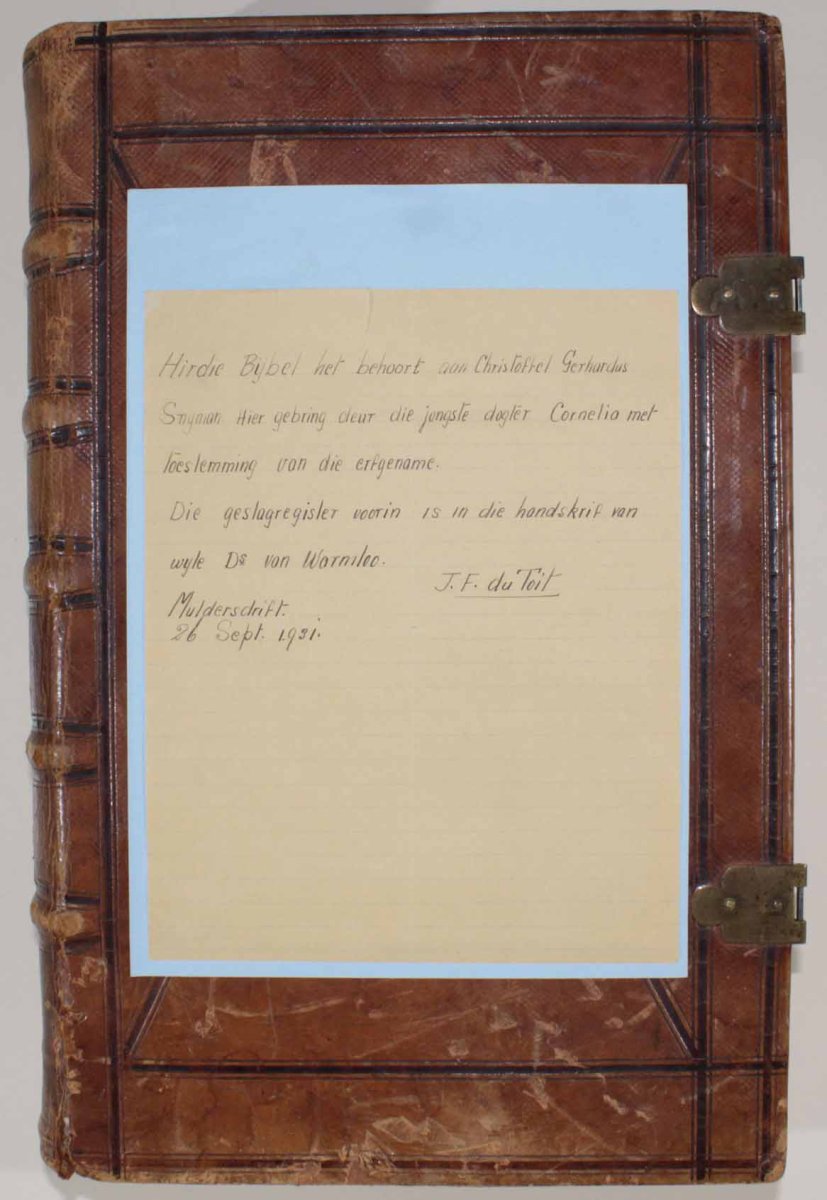 Hirdie Bijbel het behoort aan Christoffel Gerhardus
Snyman Hier gebring deur die jongste dogter Cornelia met
toestemming van die erfgename.
Die geslagregister voorin is in die handskrif van
wyle Ds van Warmloo.
J. F. du Toit
Mulderschrift.
26 Sept. 1931.